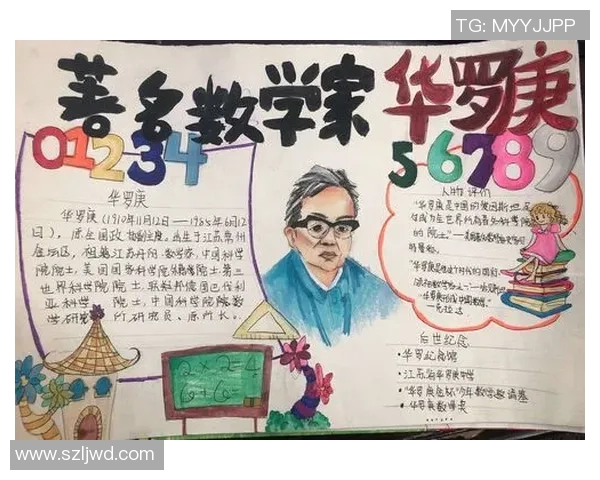 TG: MYYJJPP
著名数学家 华罗庚
01234
56789
华罗庚
华罗庚(1910年11月12日——1985年6月12
日),原全国政协副主席。出生于江苏常州
金坛区,祖籍江苏丹阳。数学家,中国科学
院院士,美国国家科学院外籍院士,第三
世界科学院院士,联邦德国巴伐利
亚科学院院士,中国科学院数
学研究所研究员、原所长。
人物评价
"华罗庚是中国的爱因斯坦,足
够成为全世界所有著名科学院
的院士"
2×2=4
6+6=
后世纪念
·华罗庚纪念馆
·江苏省华罗庚中学
·"华罗庚金杯"少年数学邀请赛
·华罗庚数学奖
www.szljwd.com